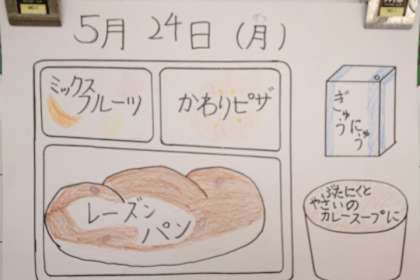 5月24日(月)
ミックス
フルーツ
かわりピザ
ぎゅうにゅう
レーズン
パン
ぶたにくと
やさいの
カレースープに